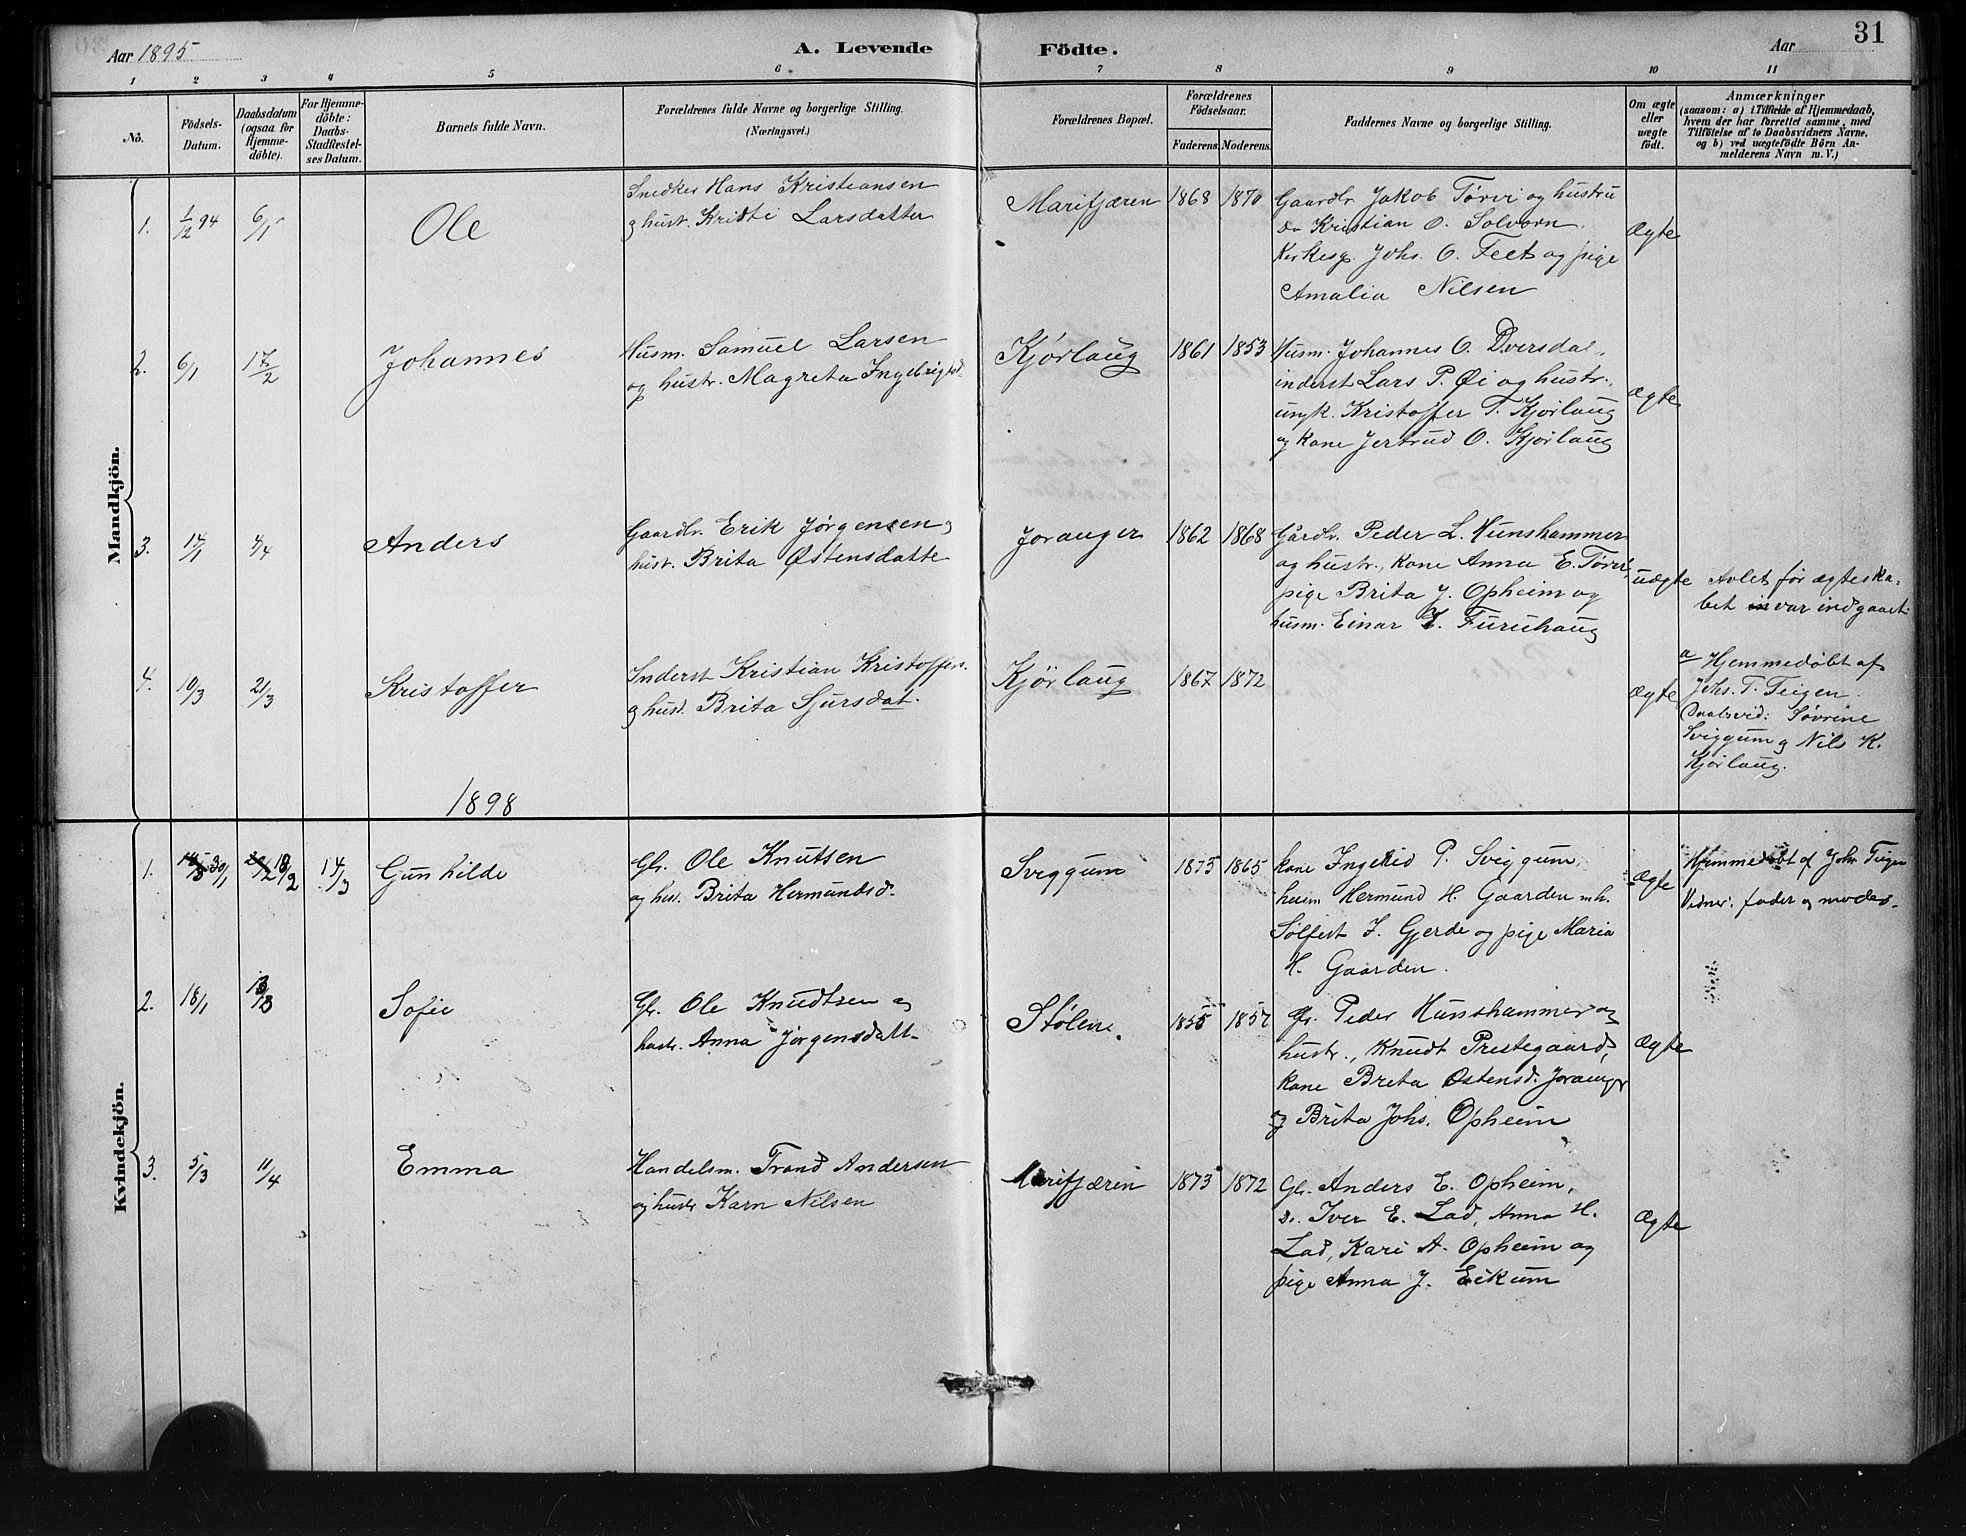 31
Aar 1895
A. Levende Födte.
Aar
1 2 3 4 5 6 7 8 9 10 11
No.
Födsels-Datum.
Daabsdatum (ogsaa for Hjemme-döbte).
For Hjemme-döbte: Daabs-Stadfæstel-ses Datum.
Barnets fulde Navn.
Forældrenes fulde Navne og borgerlige Stilling.
(Næringsvei.)
Forældrenes Bopæl.
Forældrenes Födselsaar.
Faderens. Moderens.
Faddernes Navne og borgerlige Stilling.
Om ægte eller uægte födt.
Anmærkninger
(saasom: a) i Tilfælde af Hjemmedaab,
hvem der har forrettet samme, med
Tilföielse af to Daabsvidners Navne.
og b) ved uægtefödte Börn An-
melderens Navn m. V.)
Mandkjön.
1. 1/12 94 6/1 Ole
Snedker Hans Kristiansen
og hust. Kristi Larsdatter
Marifjæren 1868 1870
Gaardbr. Jakob Tørvi og hustru
Do Kristian O. Solvorn.
Kirkesg. Johs. O. Feet og pige
Amalia Nilsen
Ægte
2. 6/1 17/2 Johannes
Husm. Samuel Larsen
og hustr. Magreta Ingebrigtsd.
Kjørlaug 1861 1853
Husm. Johannes O. Dversdal,
inderst Lars P. Øi og hustr.,
ungk. Kristoffer T. Kjørlaug
og kone Jertrud O. Kjørlaug
Ægte
3. 14/1 4/4 Anders
Gaardbr. Erik Jørgensen og
hust. Brita Østensdatte
Joranger 1862 1868
Gårdbr. Peder L. Hunshammer
og hustr., kone Anna E. Tørvi
pige Brita J. Opheim og
husm. Einar K. Furuhaug
uægte
Avlet før ægteska-
bet var indgaaet.
4. 10/3 21/3 Kristoffer
Inderst Kristian Kristoffers.
og hust. Brita Sjursdat.
Kjørlaug 1867 1872
Ægte
a Hjemmedøbt af
Johs. T. Teigen.
Daabsvid: Søvrine
Sviggum og Nils K.
Kjørlaug.
1898
Kvindekjön.
1. 30/1 18/2 14/3 Gunhilde
Gbr. Ole Knutsen
og hus. Brita Hermundsd.
Sviggum 1875 1865
kone Ingerid P. Sviggum,
husm Hermund H. Gaarden mh.
Sølfest J. Gjerde og pige Maria
H. Gaarden.
Ægte
Hjemmedøbt af Johs. Teigen
Vidner: fader og moder.
2. 18/1 Sofie
Gbr. Ole Knudtsen og
hustr. Anna Jørgensdatt.
Stølene. 1855 1857
Gbr. Peder Hunshammer og
hustr., Knudt Prestegaard,
kone Brita Østensd. Joranger
og Brita Johs. Opheim
Ægte
3. 5/3 11/4 Emma
Handelsm. Trond Andersen
og hustr Karn Nilsen
Marifjæren 1873 1872
Gbr. Anders E. Opheim,
Do. Iver E. Lad, Anna H.
Lad, Kari A. Opheim og
pige Anna J. Eikum
Ægte